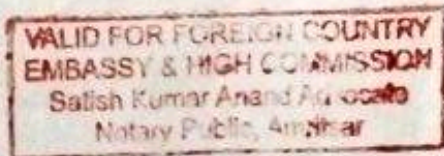 VALID FOR FOREIGN COUNTRY
EMBASSY & HIGH COMMISSION
Satish Kumar Anand Advocate
Notary Public, Amritsar